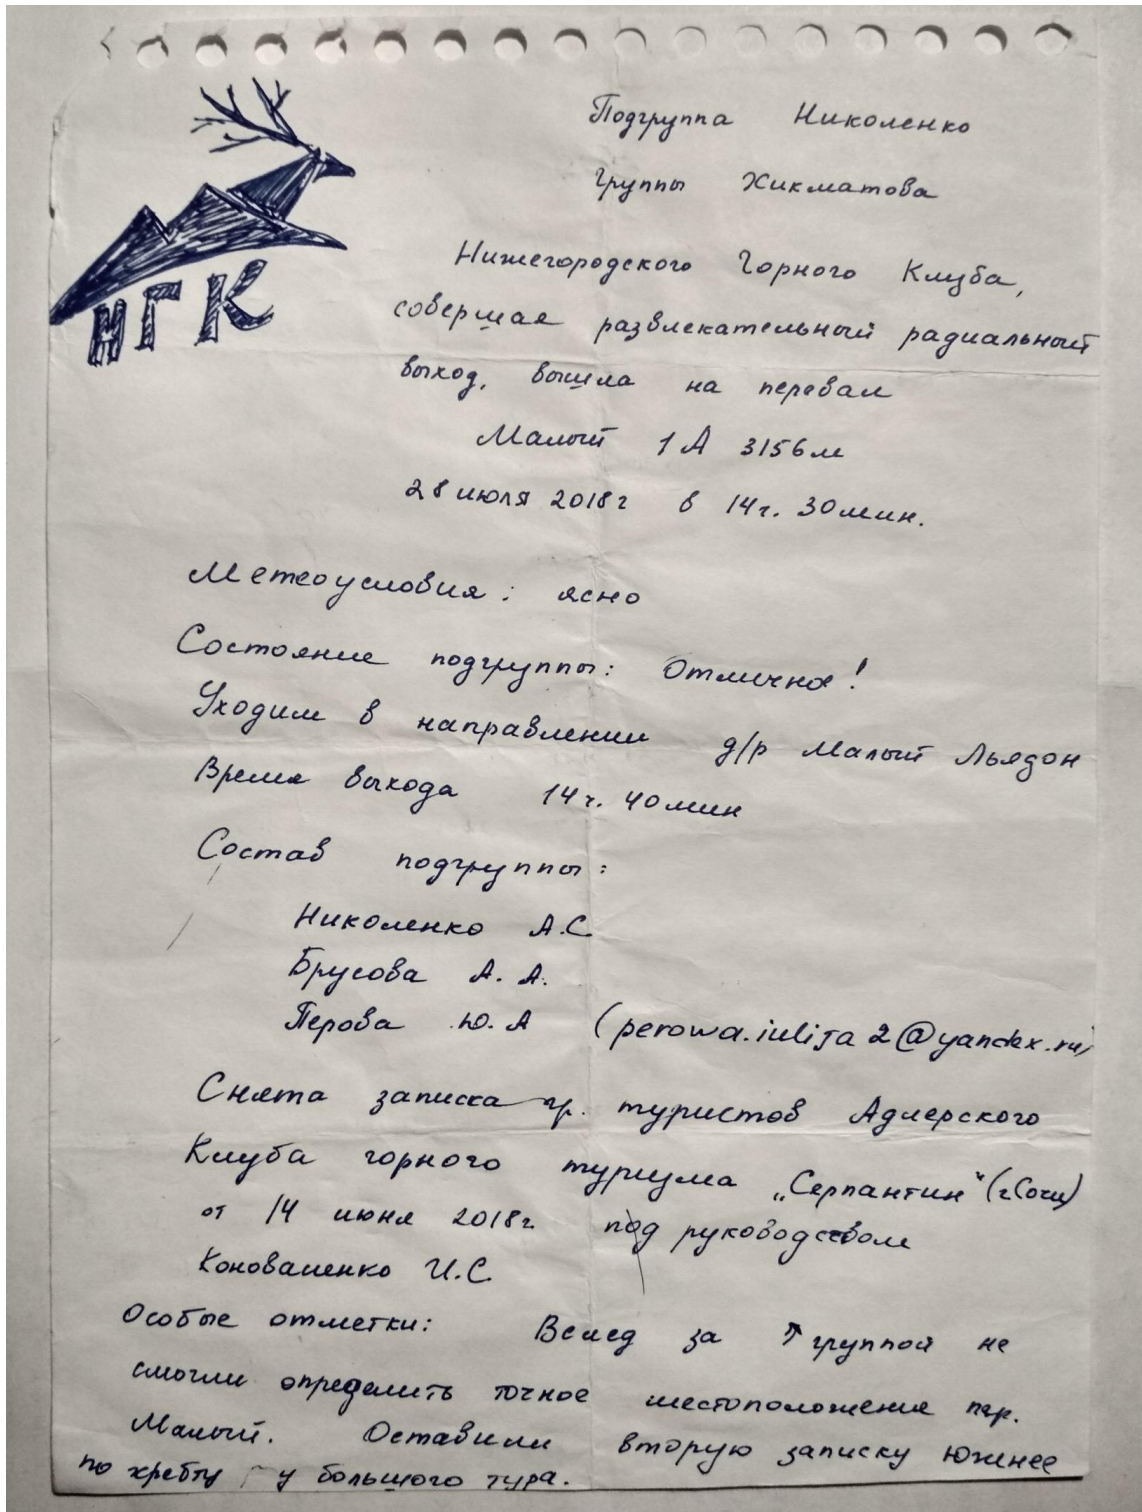 НГК
Подгруппа Николенко
Группы Хикматова
Нижегородского Горного Клуба,
совершая развлекательный радиальный
выход, вышла на перевал
Малый 1А 3156м
28 июля 2018г в 14г. 30мин.
Метеоусловия: ясно
Состояние подгруппы: Отлично!
Уходим в направлении д/р Малый Льядон
Время выхода 14ч. 40мин
Состав подгруппы:
Николенко А.С.
Брусова А. А.
Перова Ю.А (perowa.iulija2@yandex.ru)
Снята записка гр. туристов Адлерского
Клуба горного туризма „Серпантин“ (г.Сочи)
от 14 июня 2018г. под руководством
Коноваленко И.С.
Особые отметки: Вслед за ↑ группой не
смогли определить точное местоположение пер.
Малый. Оставили вторую записку южнее
по хребту у большого тура.